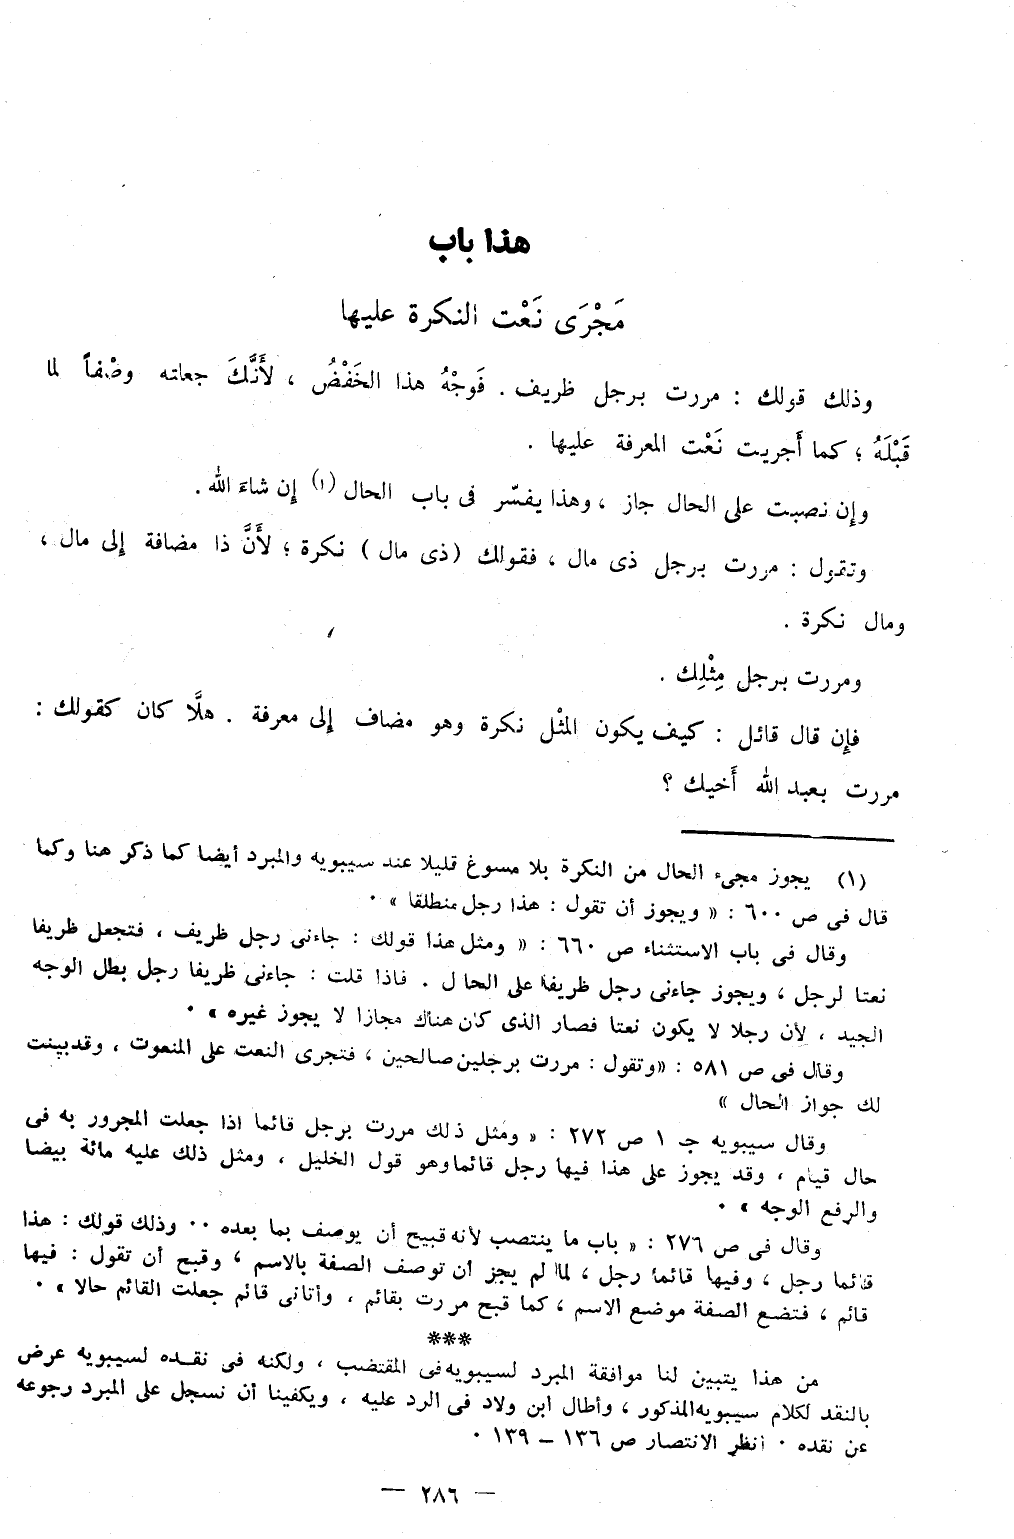 هذا باب
مَجْرَى نَعْت النكرة عليها
وذلك قولك : مررت برجل ظريف . فَوجْهُ هذا الخَفْضُ ، لأَنَّكَ جعلته وصْفاً لما
قَبْلَهُ ؛ كما أَجريت نَعْت المعرفة عليها .
وإن نصبت على الحال جاز ، وهذا يفسّر فى باب الحال (١) إِن شاءَ الله .
وتقول : مررت برجل ذى مال ، فقولك (ذى مال ) نكرة ؛ لأَنَّ ذا مضافة إِلى مال ،
ومال نكرة .
ومررت برجل مِثْلِك .
فإِن قال قائل : كيف يكون المثْل نكرة وهو مضاف إِلى معرفة . هلَّا كان كقولك :
مررت بعبد الله أَخيك ؟
(١) يجوز مجىء الحال من النكرة بلا مسوغ قليلا عند سيبويه والمبرد أيضا كما ذكر هنا وكما
قال فى ص ٦٠٠ : « ويجوز أن تقول : هذا رجل منطلقا » ٠
وقال فى باب الاستثناء ص ٦٦٠ : « ومثل هذا قولك : جاءنى رجل ظريف ، فتجعل ظريفا
نعتا لرجل ، ويجوز جاءنى رجل ظريفا على الحال . فاذا قلت : جاءنى ظريفا رجل بطل الوجه
الجيد ، لأن رجلا لا يكون نعتا فصار الذى كان هناك مجازا لا يجوز غيره » ٠
وقال فى ص ٥٨١ : «وتقول : مررت برجلين صالحين ، فتجرى النعت على المنعوت ، وقد بينت
لك جواز الحال »
وقال سيبويه جـ ١ ص ٢٧٢ : « ومثل ذلك مررت برجل قائما اذا جعلت المجرور به فى
حال قيام ، وقد يجوز على هذا فيها رجل قائما وهو قول الخليل ، ومثل ذلك عليه مائة بيضا
والرفع الوجه » ٠
وقال فى ص ٢٧٦ : « باب ما ينتصب لأنه قبيح أن يوصف بما بعده ٠٠ وذلك قولك : هذا
قائما رجل ، وفيها قائما رجل ، لما لم يجز أن توصف الصفة بالاسم ، وقبح أن تقول : فيها
قائم ، فتضع الصفة موضع الاسم ، كما قبح مررت بقائم ، وأتانى قائم جعلت القائم حالا » ٠
***
من هذا يتبين لنا موافقة المبرد لسيبويه فى المقتضب ، ولكنه فى نقده لسيبويه عرض
بالنقد لكلام سيبويه المذكور ، وأطال ابن ولاد فى الرد عليه ، ويكفينا أن نسجل على المبرد رجوعه
عن نقده ٠ انظر الانتصار ص ١٣٦ – ١٣٩ ٠
— ٢٨٦ —